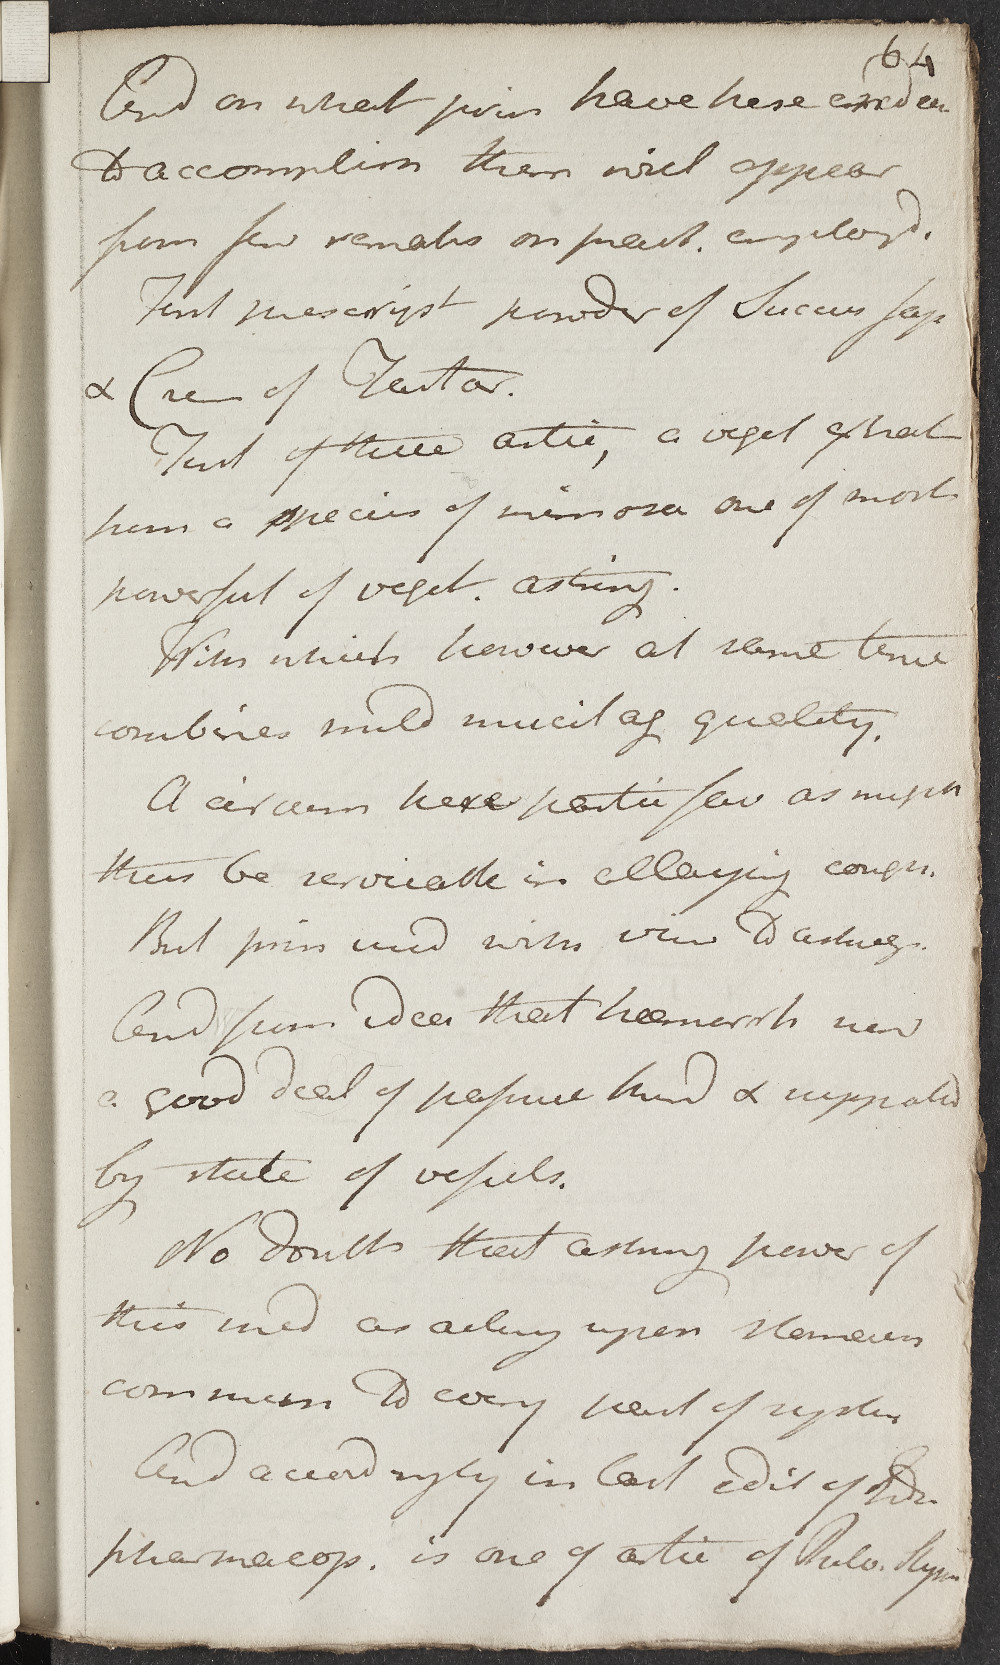 64
And on what prin have here endeav
To accomplish them will appear
from few remarks on pract. employd.
First prescript powder of Succus Jap
& Crem of Tartar.
First of these artic, a veget extract
from a species of mimosa one of most
powerful of veget. astring.
With which however at same time
combines mild mucilag quality.
A circum here partic fav as might
thus be serviceable in allaying cough.
But prin used with view To astring.
And from idea that haemorrh was
a good deal of passive kind & supported
by state of vessels.
No doubt that astring power of
this med as acting upon stomach
commun To every part of system
And accordingly in last edit of Edin.
pharmacop. is one of artic of Pulv. Styp